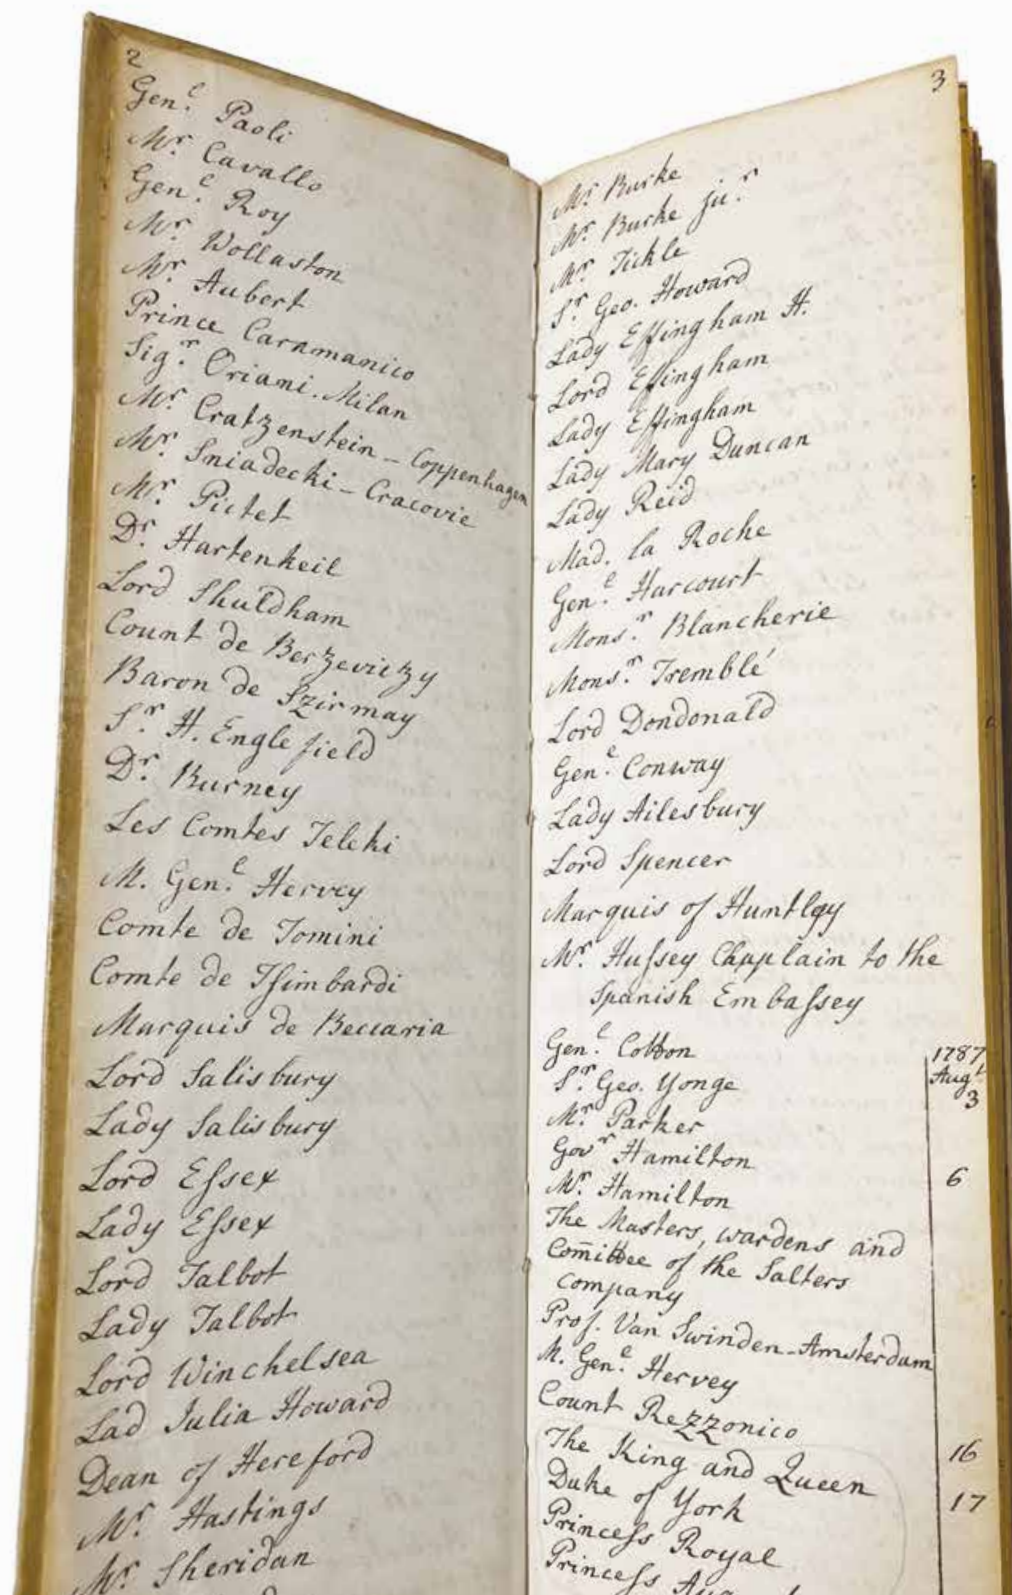 2
Genl. Paoli
Mr. Cavallo
Genl. Roy
Mr. Wollaston
Mr. Aubert
Prince Caramanico
Sigr. Oriani. Milan
Mr. Cratzenstein - Coppenhagen
Mr. Sniadecki - Cracovie
Mr. Pictet
Dr. Hartenkeil
Lord Shuldham
Count de Berzeviczy
Baron de Szirmay
Sr. H. Englefield
Dr. Burney
Les Comtes Teleki
M. Genl. Hervey
Comte de Tomini
Comte de Isimbardi
Marquis de Beccaria
Lord Salisbury
Lady Salisbury
Lord Essex
Lady Essex
Lord Talbot
Lady Talbot
Lord Winchelsea
Lad Julia Howard
Dean of Hereford
Mr. Hastings
Mr. Sheridan
3
Mr. Burke
Mr. Burke jur.
Mr. Tickle
Sr. Geo. Howard
Lady Effingham H.
Lord Effingham
Lady Effingham
Lady Mary Duncan
Lady Reid
Mad. la Roche
Genl. Harcourt
Monsr. Blancherie
Monsr. Tremblé
Lord Dondonald
Genl. Conway
Lady Ailesbury
Lord Spencer
Marquis of Huntley
Mr. Hussey Chaplain to the
Spanish Embassey
Genl. Cotton
1787
Sr. Geo. Yonge
Augt.
3
Mr. Parker
Govr. Hamilton
6
Mr. Hamilton
The Masters, wardens and
Com̄ittee of the Salters
company
Prof. Van Swinden-Amsterdam
M. Genl. Hervey
Count Rezzonico
The King and Queen
16
Duke of York
17
Princess Royal
Princess